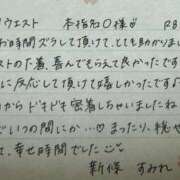 ウエスト 本指名○様 R8
お時間ズラして頂けて、とても助かりま
ストの一着、喜んでもらえて良かったです
に反応して頂けて嬉しかったです♪
から ドキドキ密着しちゃいましたね
でいつの間にか…♡ まったり、
て、幸せ時間でした☺
新條 すみれ